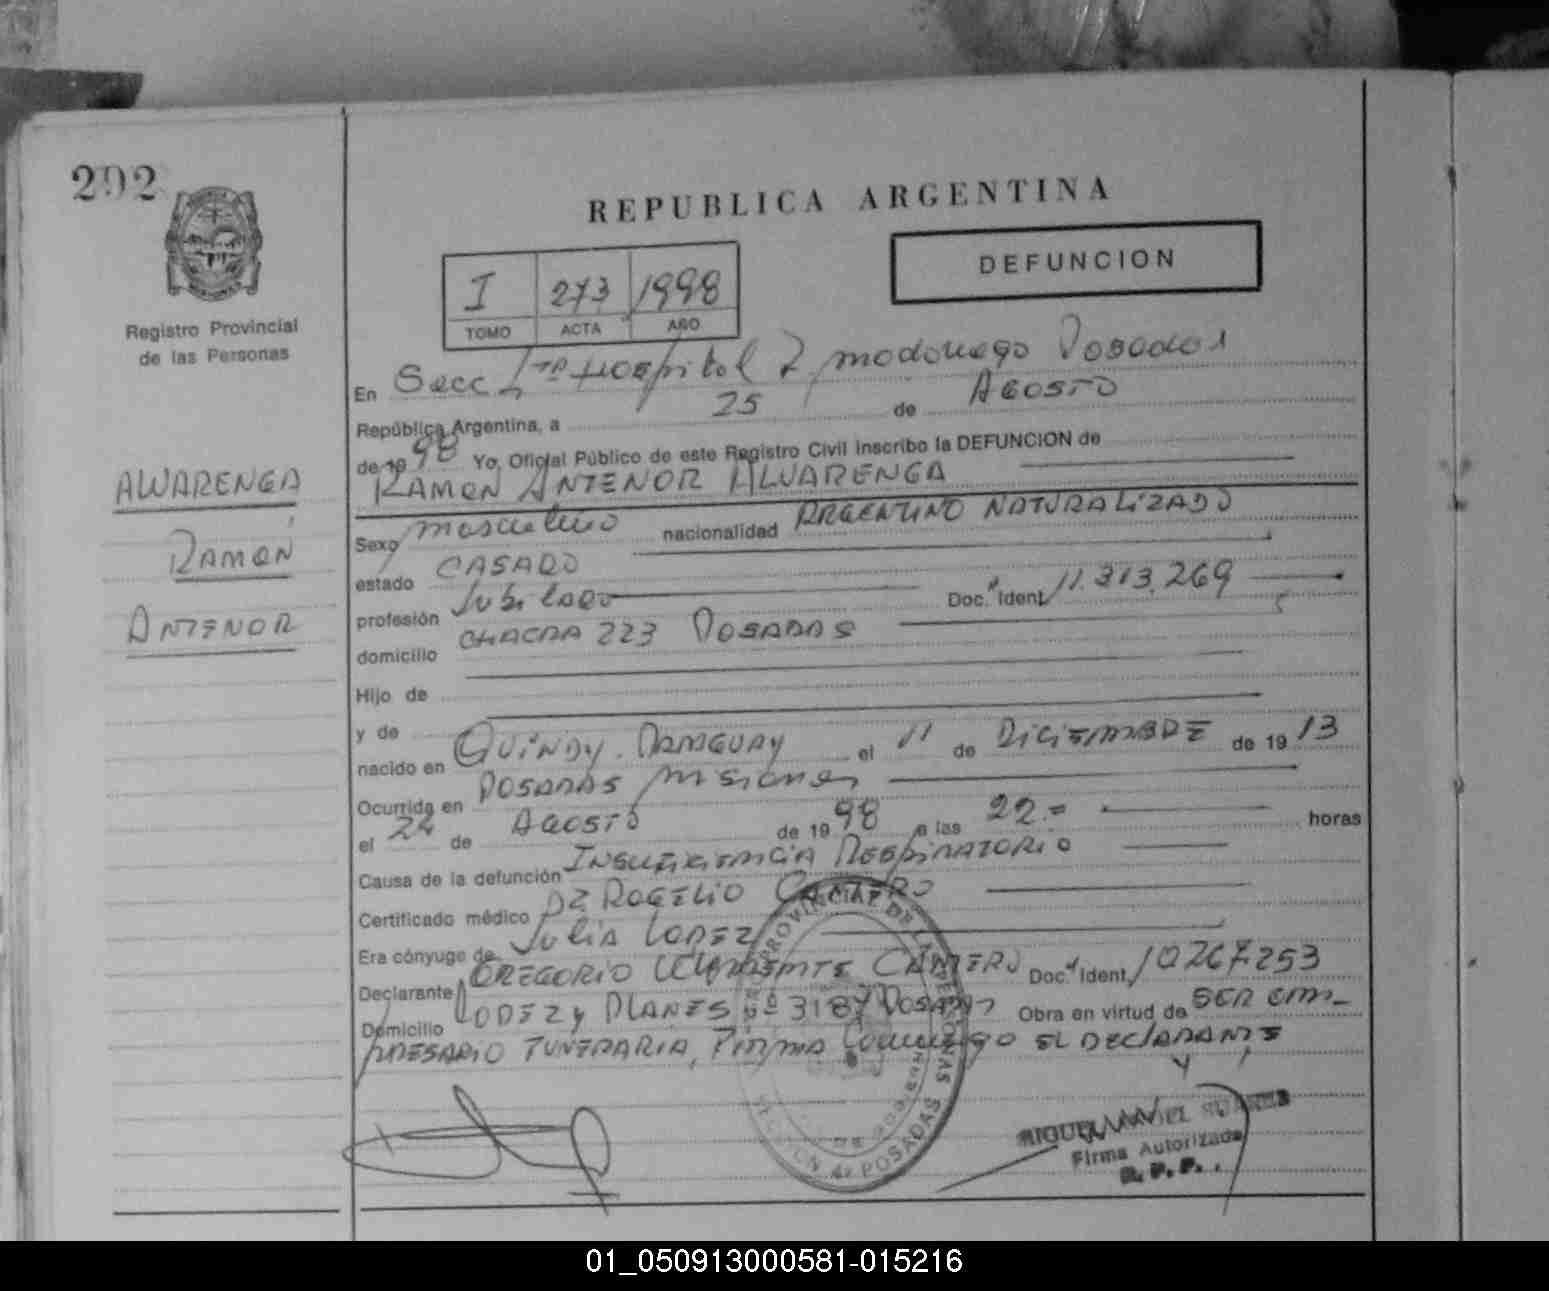 292
REPUBLICA ARGENTINA
DEFUNCION
I 273 1998
TOMO ACTA AÑO
Registro Provincial
de las Personas
En Secc 1ra Hospital R. madariaga Posadas
República Argentina, a 25 de AGOSTO
de 19 98 Yo, Oficial Público de este Registro Civil inscribo la DEFUNCION de
RAMON ANTENOR ALVARENGA
ALVARENGA
RAMON
ANTENOR
Sexo masculino nacionalidad ARGENTINO NATURALIZADO
estado CASADO
profesión Jubilado Doc. Ident 11.313.269
domicilio CHACRA 223 POSADAS
Hijo de
y de
nacido en QUINDY. PARAGUAY el 11 de DICIEMBRE de 19 13
Ocurrida en POSADAS MISIONES
el 24 de AGOSTO de 19 98 a las 22.= horas
Causa de la defunción INSUFICIENCIA RESPIRATORIO
Certificado médico DR ROGELIO
Era cónyuge de JULIA LOPEZ
Declarante GREGORIO CLEMENTE CANTERO Doc. Ident 10267253
Domicilio LOPEZ y PLANES Nº 3187 POSADAS Obra en virtud de SER EM-
PRESARIO FUNERARIA, FIRMA Conmigo EL DECLARANTE
REGISTRO PROVINCIAL DE LAS PERSONAS
SECCION 1a POSADAS
MIGUEL
Firma Autorizada
R. P. P.
01_050913000581-015216